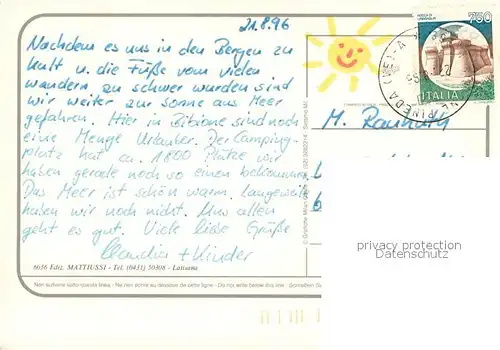 21.8.96
Nachdem es uns in den Bergen zu
kalt u. die Füße vom vielen
wandern zu schwer wurden sind
wir weiter zur Sonne ans Meer
gefahren. Hier in Bibione sind noch
eine Menge Urlauber. Der Camping-
platz hat ca. 1800 Plätze wir
haben gerade noch so einen bekommen.
Das Meer ist schön warm. Langeweile
haben wir noch nicht. Uns allen
geht es gut. Viele liebe Grüße
Claudia + Kinder
8036 Ediz. MATTIUSSI - Tel. (0431) 50308 - Latisana
Non scrivere sotto questa linea - Ne rien écrire au dessous de cette ligne - Do not write below this line - Schreiben Si
M.
750
ITALIA
PINEDA
privacy protection
Datenschutz